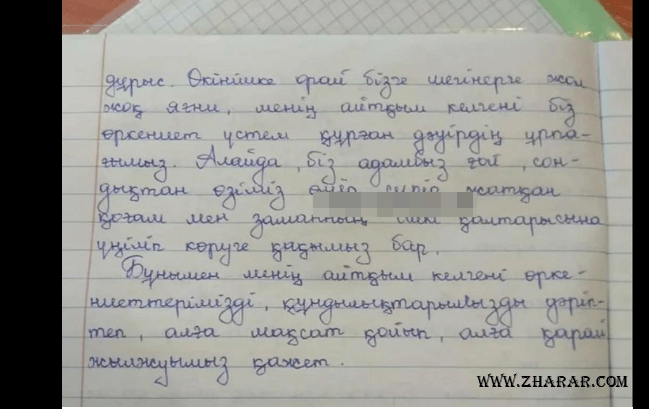 дұрыс. Өкінішке орай бізге шегінерге жол
жоқ яғни, менің айтқым келгені біз
өркениет үстем құрған дәуірдің ұрпа-
ғымыз. Алайда, біз адамбыз ғой, сон-
дықтан өзіміз өмір сүріп жатқан
қоғам мен заманның ішкі қалтарысына
үңіліп көруге қақымыз бар.
Бұнымен менің айтқым келгені өрке-
ниеттерімізді, құндылықтарымызды дәріп-
теп, алға мақсат қойып, алға қарай
жылжуымыз қажет.
WWW.ZHARAR.COM